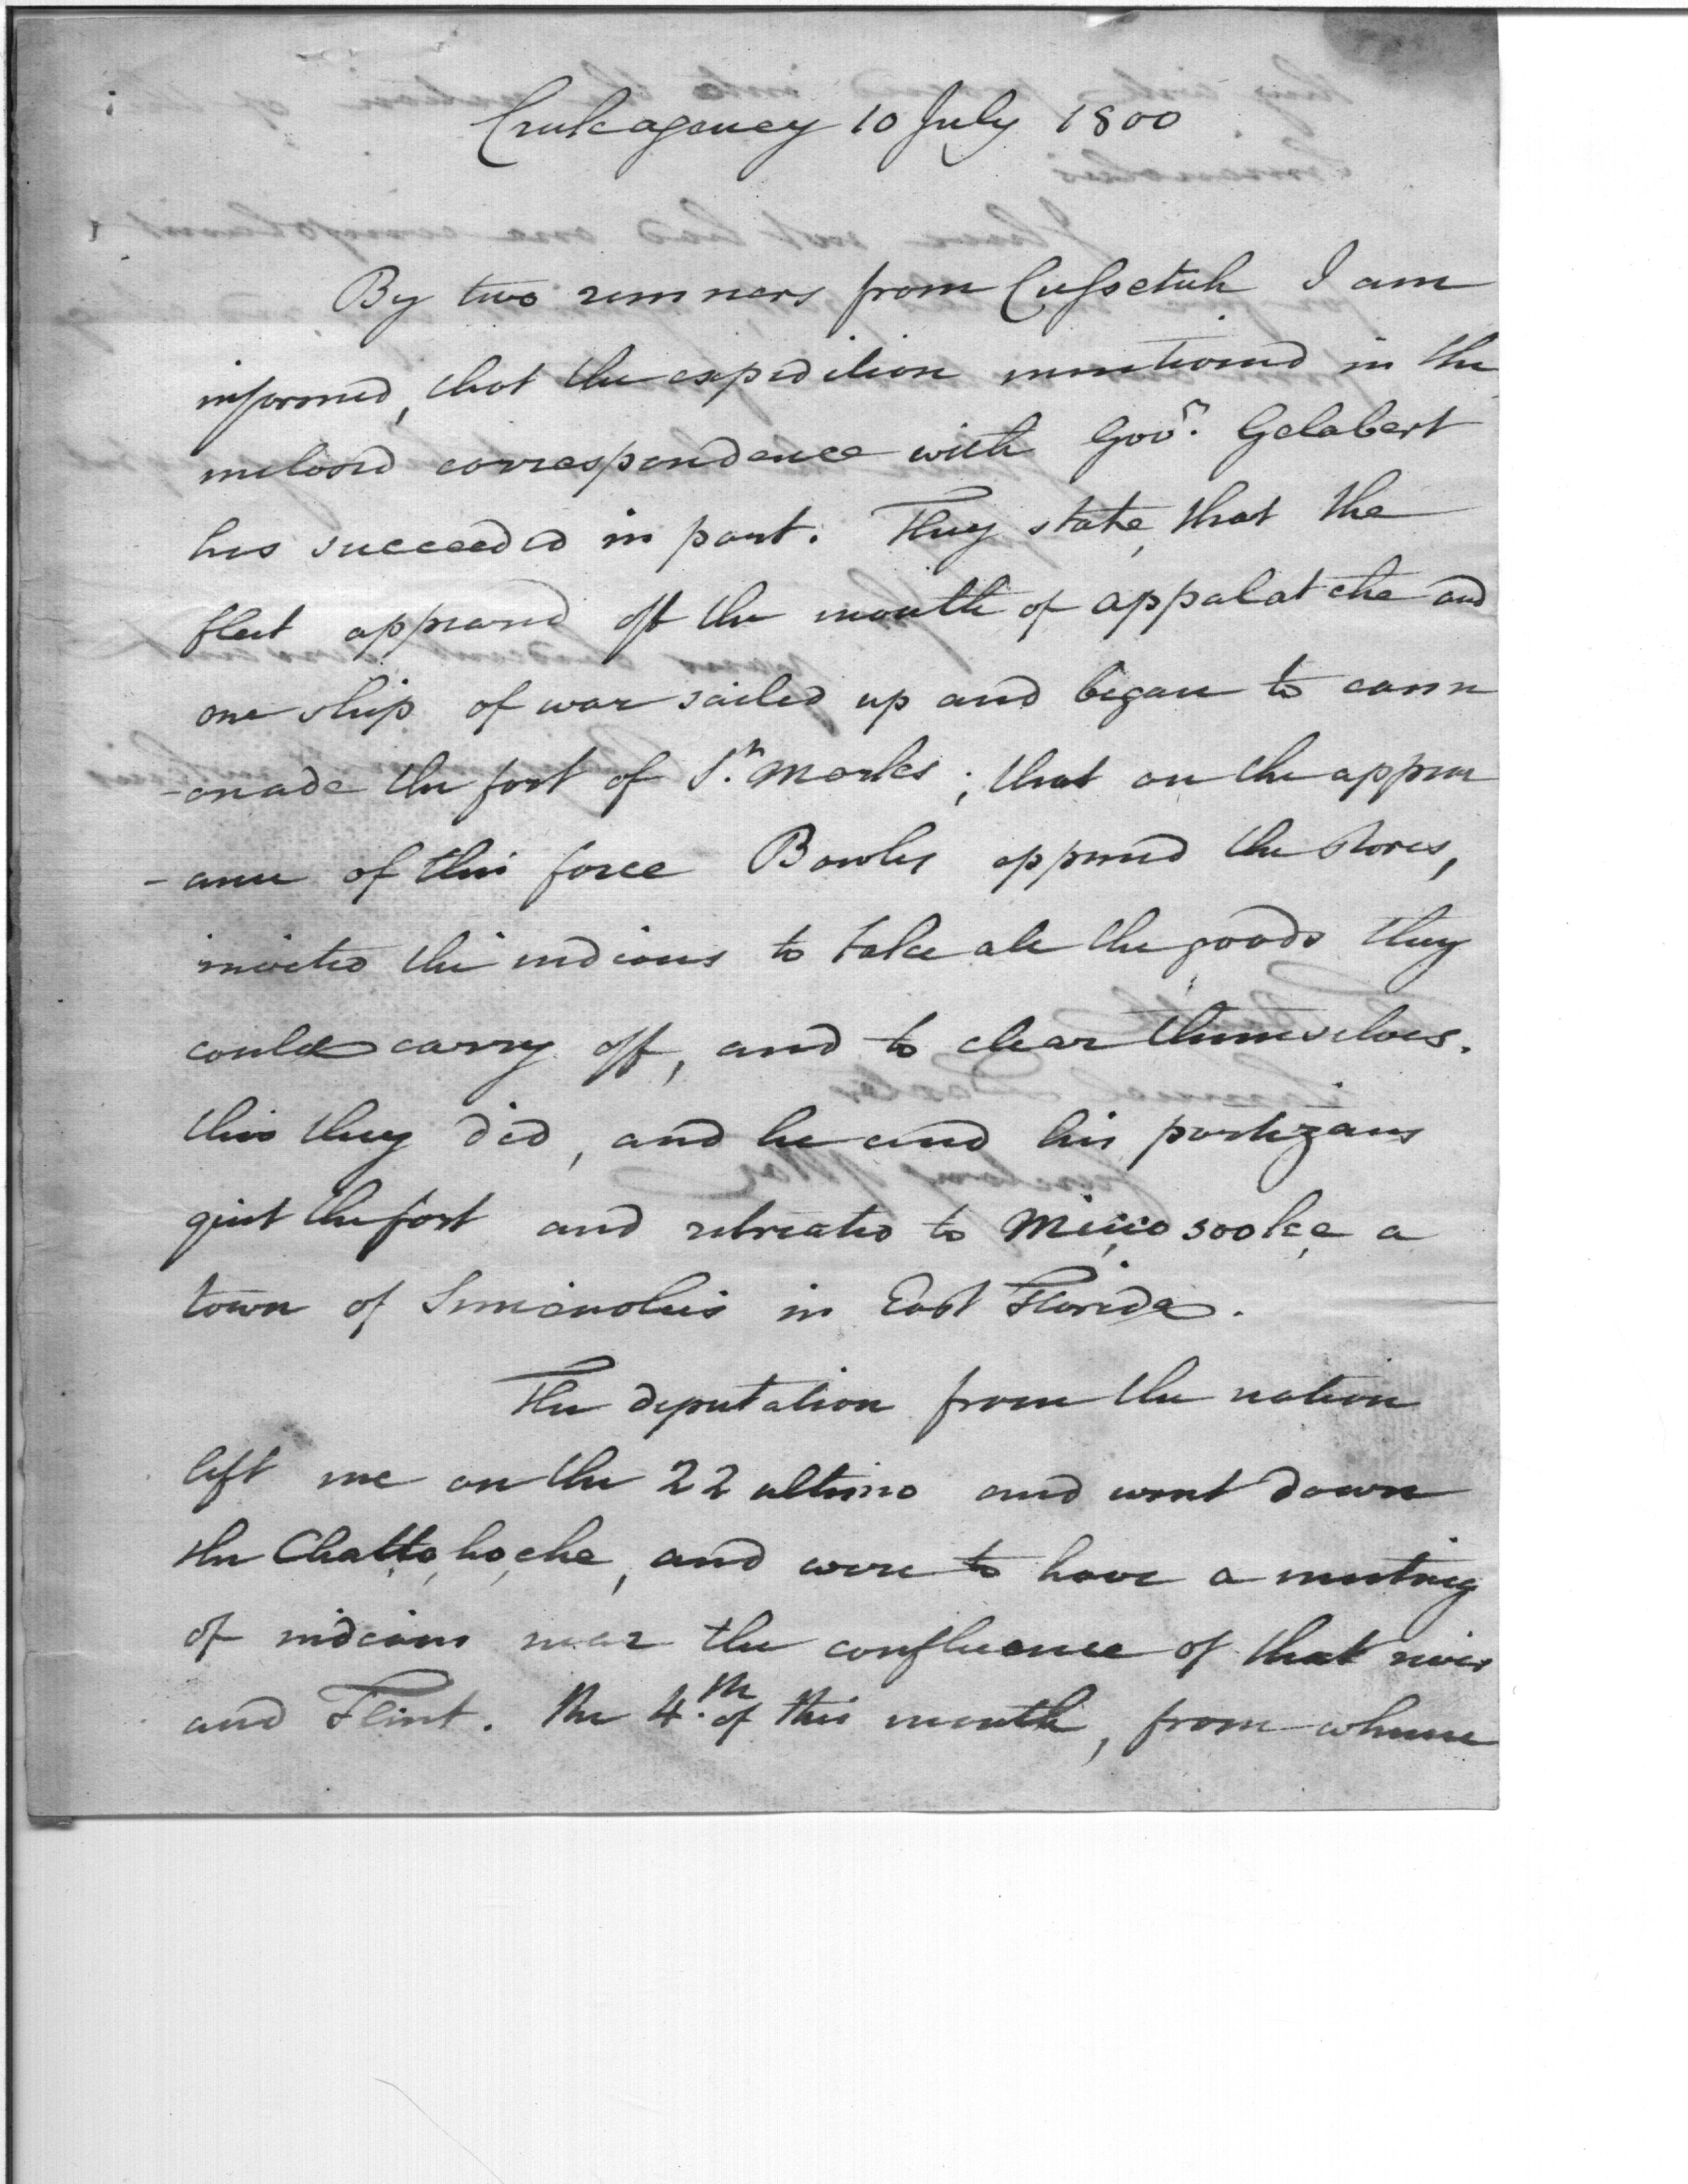 Creek agency 10 July 1800
By two runners from Cussetuh I am
informed, that the expedition mentioned in the
inclosed correspondence with Govr. Gelabert
has succeeded in part. They state, that the
fleet appeared off the mouth of appalatche and
one ship of war sailed up and began to cann
-onade the fort of St. Marks; that on the appear
-ance of this force Bowles oppened the stores,
invited the indians to take all the goods they
could carry off, and to clear themselves.
this they did, and he and his partizans
quit the fort and retreated to Micco sooke a
town of Simenolies in East Florida.
The deputation from the nation
left me on the 22 ultimo and went down
the Chatto ho che, and were to have a meeting
of indians near the confluence of that river
and Flint. the 4th. of this month, from whence